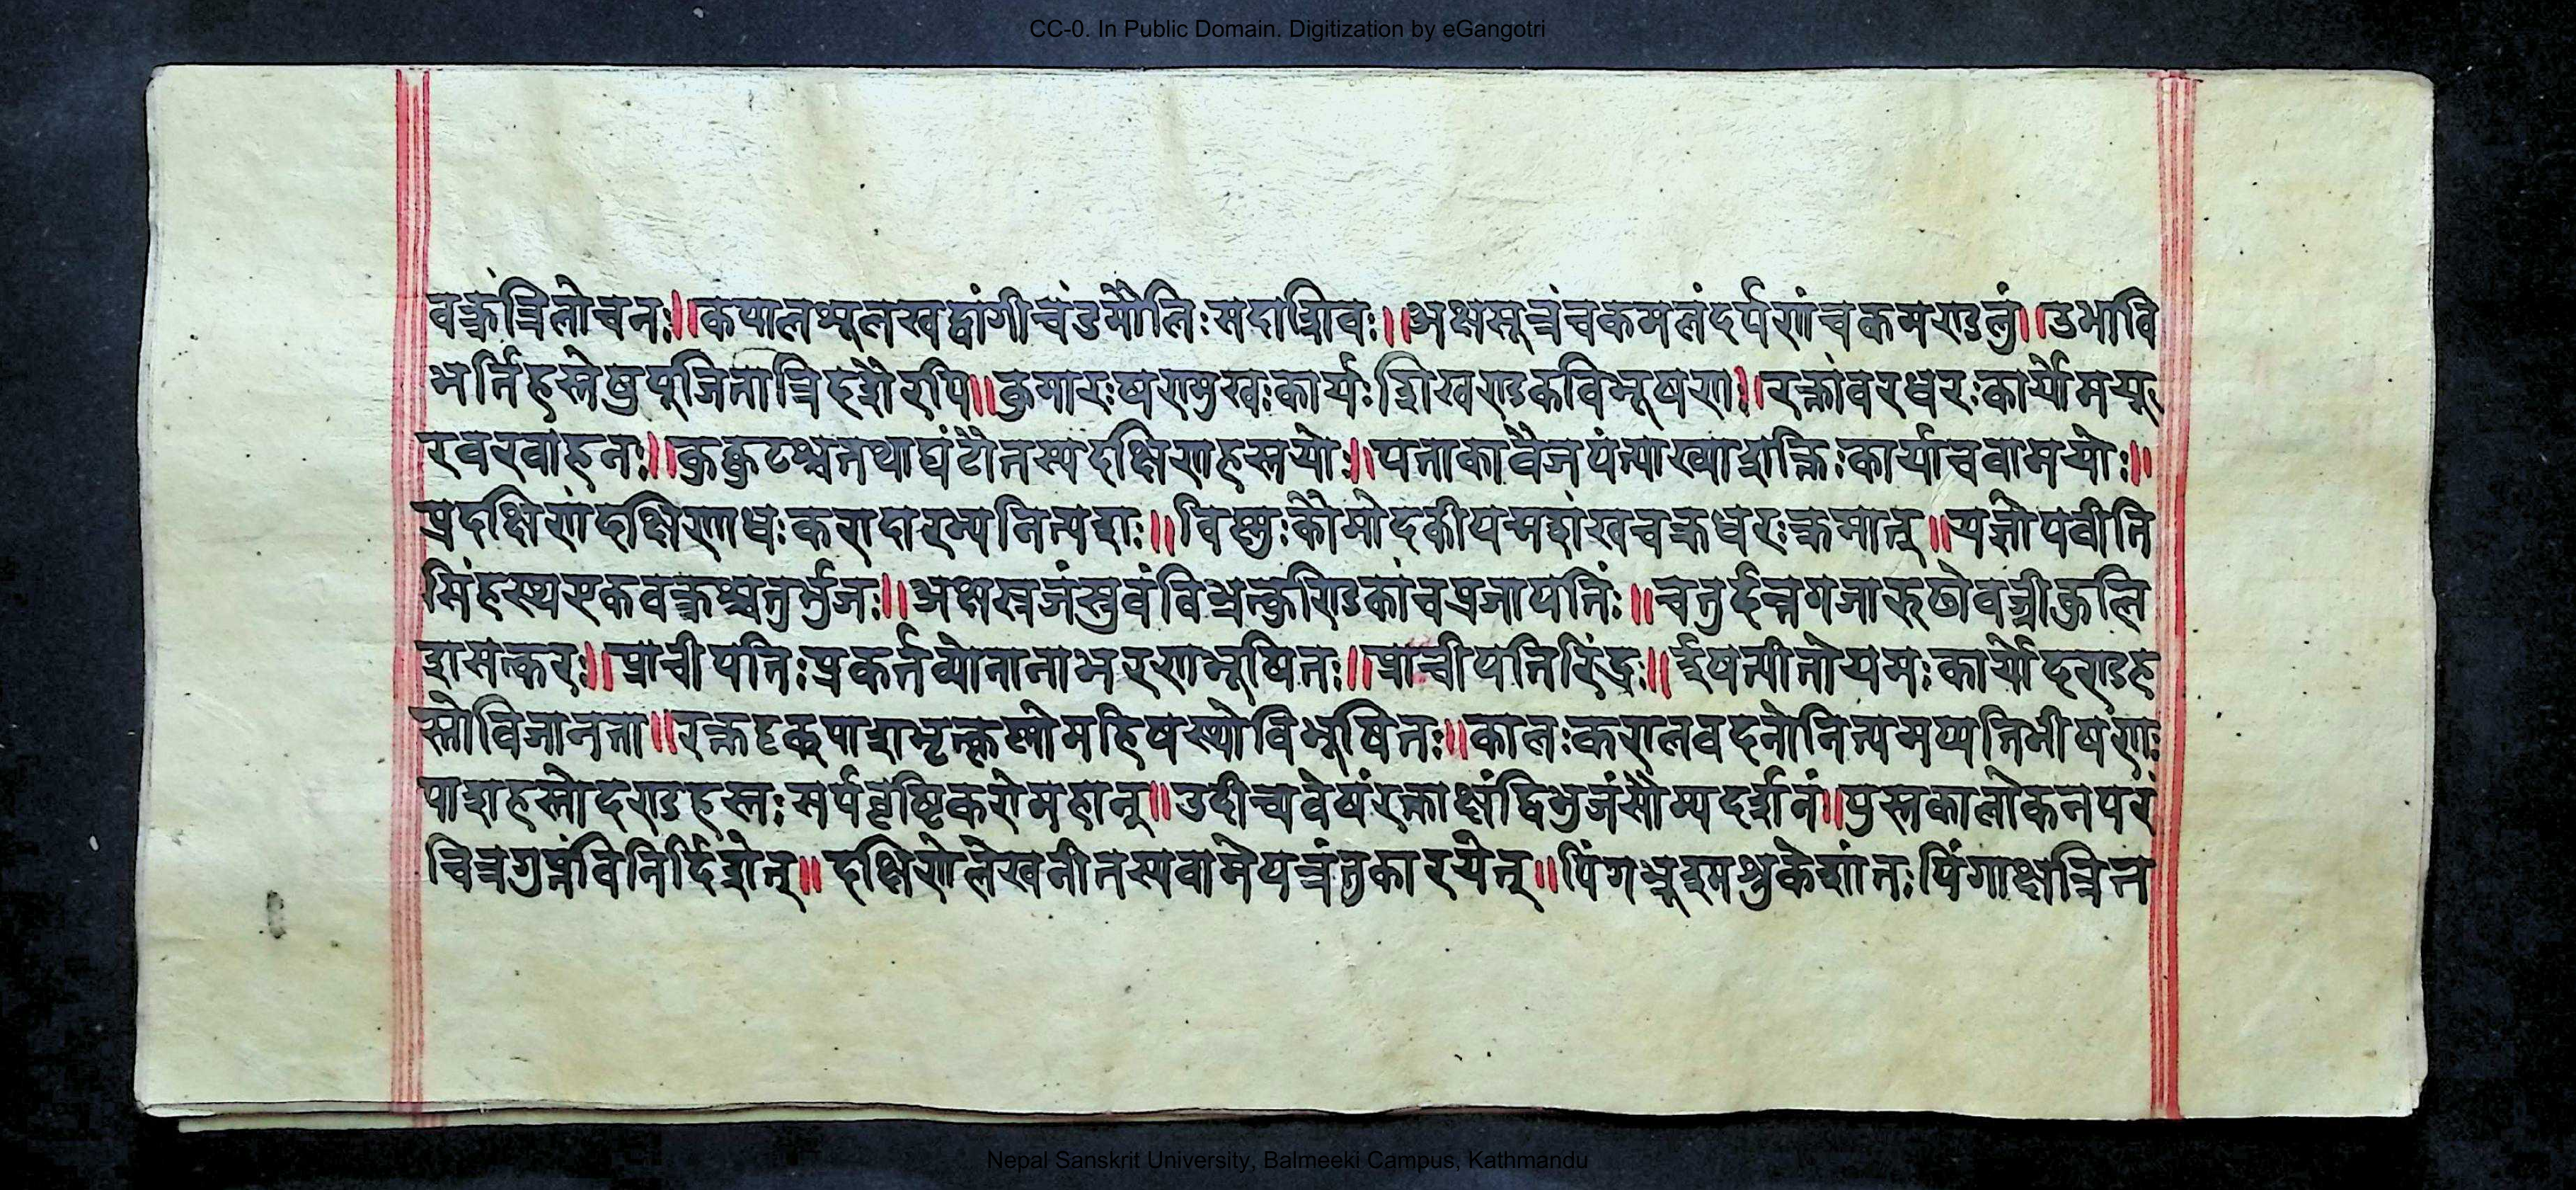 CC-0. In Public Domain. Digitization by eGangotri
वक्त्रंत्रिलोचनः॥कपालशूलखट्वांगीचंडमौलिःसदाशिवः॥अक्षसूत्रंचकमलंदर्पणंचकमण्डलुं॥उभावि
भर्तिहस्तेषुपूजितात्रिदशैरपि॥कुमारःषण्मुखःकार्यःशिखण्डकविभूषणः॥रक्तांवरधरःकार्योमयू
रवरवाहनः॥कुक्कुटश्चतथाघंटौतस्यदक्षिणहस्तयोः॥पताकावैजयंत्याख्याशक्तिःकार्याचवामयोः॥
प्रदक्षिणंदक्षिणाधःकरादारभ्यनित्यशः॥विष्णुःकौमोदकीपद्मशंखचक्रधरःक्रमात्॥यज्ञोपवीति
सिंहस्थएकवक्त्रश्चतुर्भुजः॥अक्षस्रजंस्रुवंविभ्रत्कुण्डिकांचप्रजापतिः॥चतुर्दन्तगजारूढोवज्रीकुलि
शसत्करः॥प्राचीपतिःप्रकर्तव्योनानाभरणभूषितः॥प्राचीपतिरिंद्रः॥ईषत्पीतोयमःकार्योदण्डह
स्तोविजानता॥रक्तदृक्पाशभृत्कृष्णोमहिषस्थोविभूषितः॥कालःकरालवदनोनित्यमप्यतिभीषणः
पाशहस्तोदण्डहस्तःसर्पवृष्टिकरोमहान्॥उदीच्यवेषंरक्ताक्षंद्विभुजंसौम्यदर्शनं॥पुस्तकालोकनपरं
चित्रगुप्तंविनिर्दिशेत्॥दक्षिणेलेखनीतस्यवामेपत्रंतुकारयेत्॥पिंगभ्रूश्मश्रुकेशांतःपिंगाक्षत्रित
Nepal Sanskrit University, Balmeeki Campus, Kathmandu